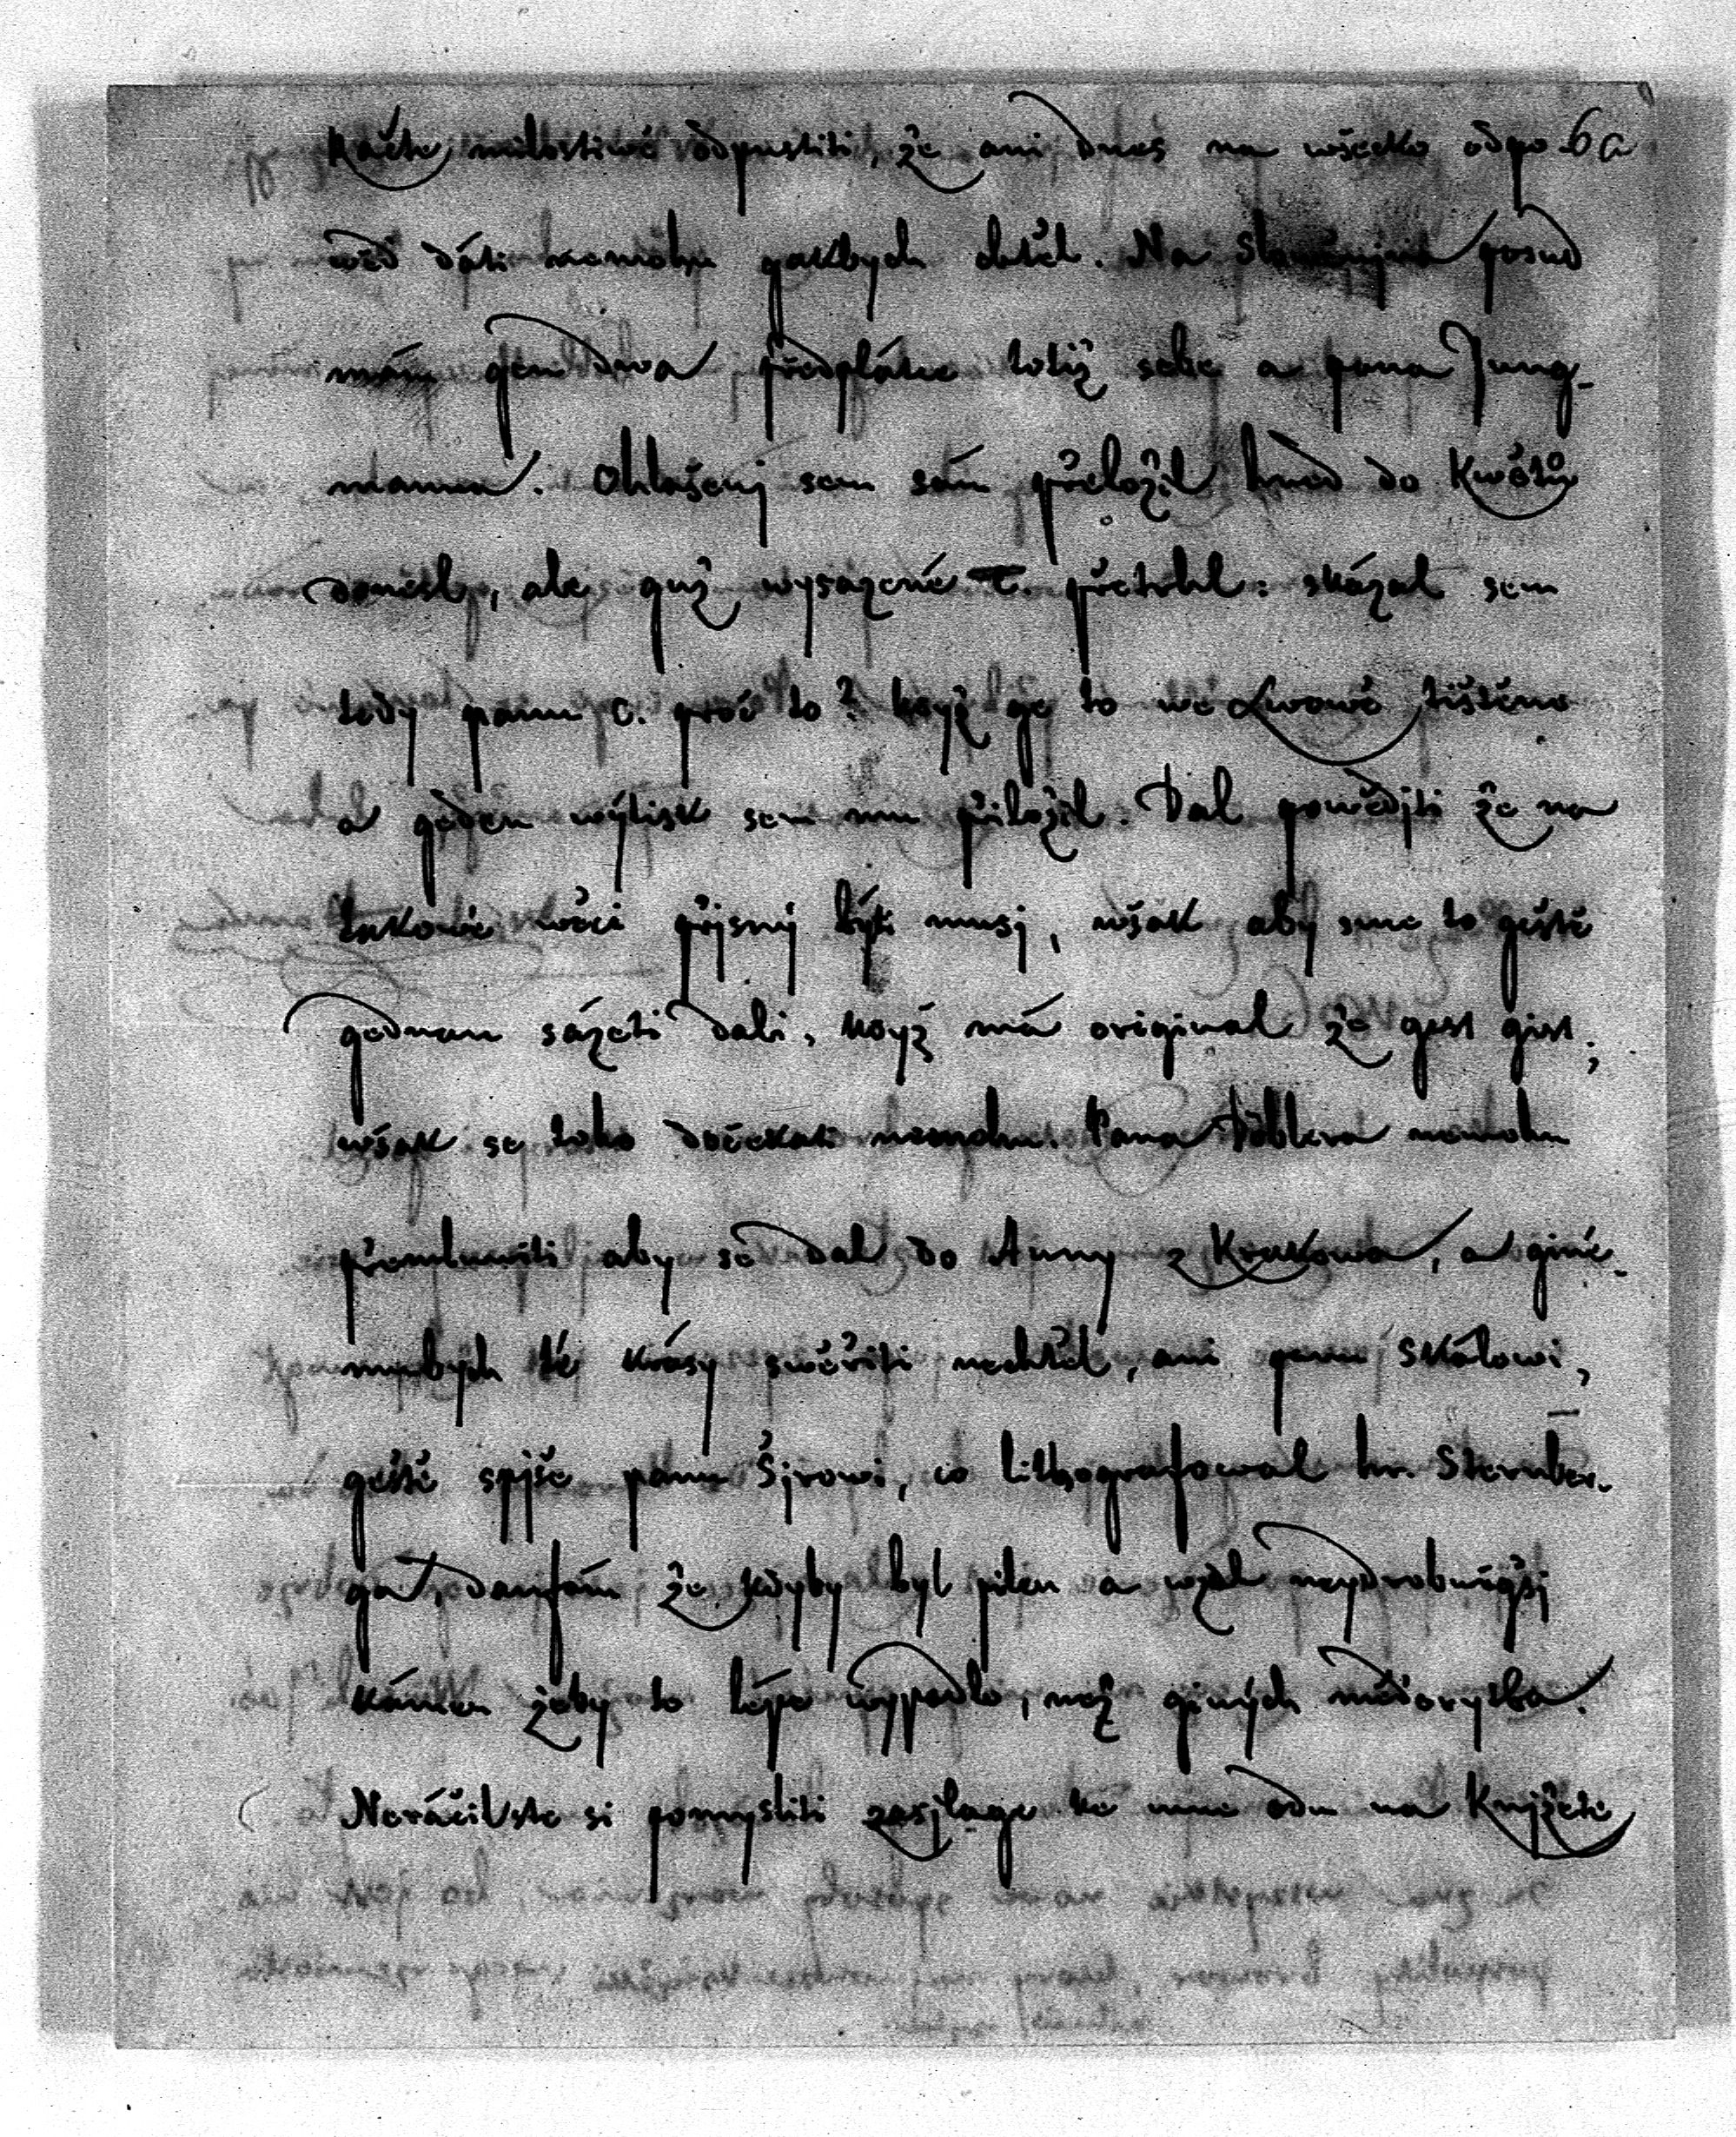 Račte milostiwě odpustiti, že ani dnes na wšecko odpo 6a
wěd dáti nemohu gakbych chtěl. Na posud
mám gen dwa předplatce totiž sebe a pana Jung-
manna. Ohlášenj sem sám přeložil hned do Kwětů
donesl, ale giž wysazené C. přetrhl: skázal sem
tedy panu C. proč to? když ge to we Lwowě tištěno
a geden wýtisk sem mu přiložil. Dal powědjti že na
takowé wěci přjsný býti musj, wšak aby sme to geště
gednau sázeti dali, když má original že gest gist;
wšak se toho dočekati nemohu. Pana Döblera nemohu
přemluwiti aby se dal do Anny z Krakowa, a giné-
mubych té krásy swěřiti nechtěl, ani panu Skálowi,
geště spjše panu Šjrowi, co lithografowal hr. Sternber-
ga, daufám že kdyby byl pilen a wzal neydrobněgšj
kámen žeby to lépe wypadlo, než giných mědorytba.
Neráčilste si pomysliti zasjlage ke mne odu na Knjžete